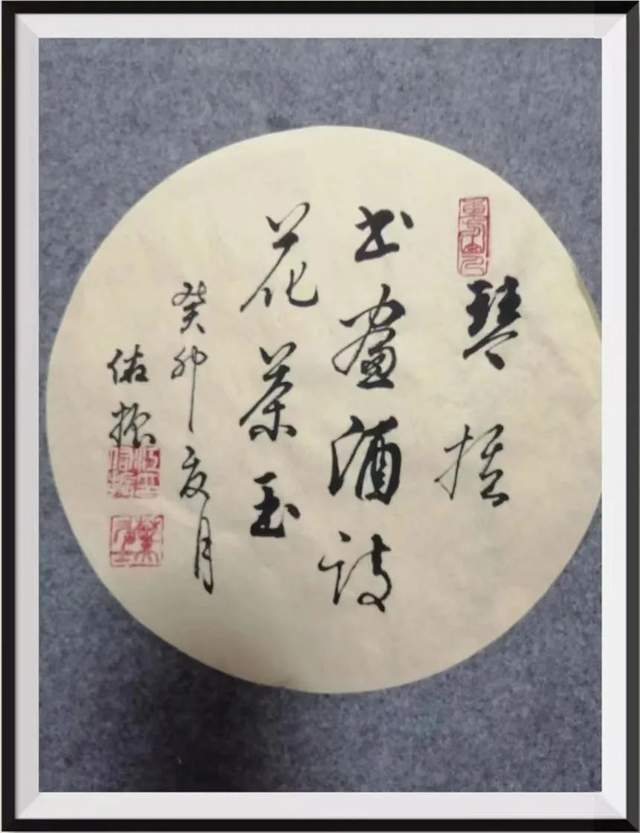 琴棋
书畫酒诗
花茶玉
癸卯夏月